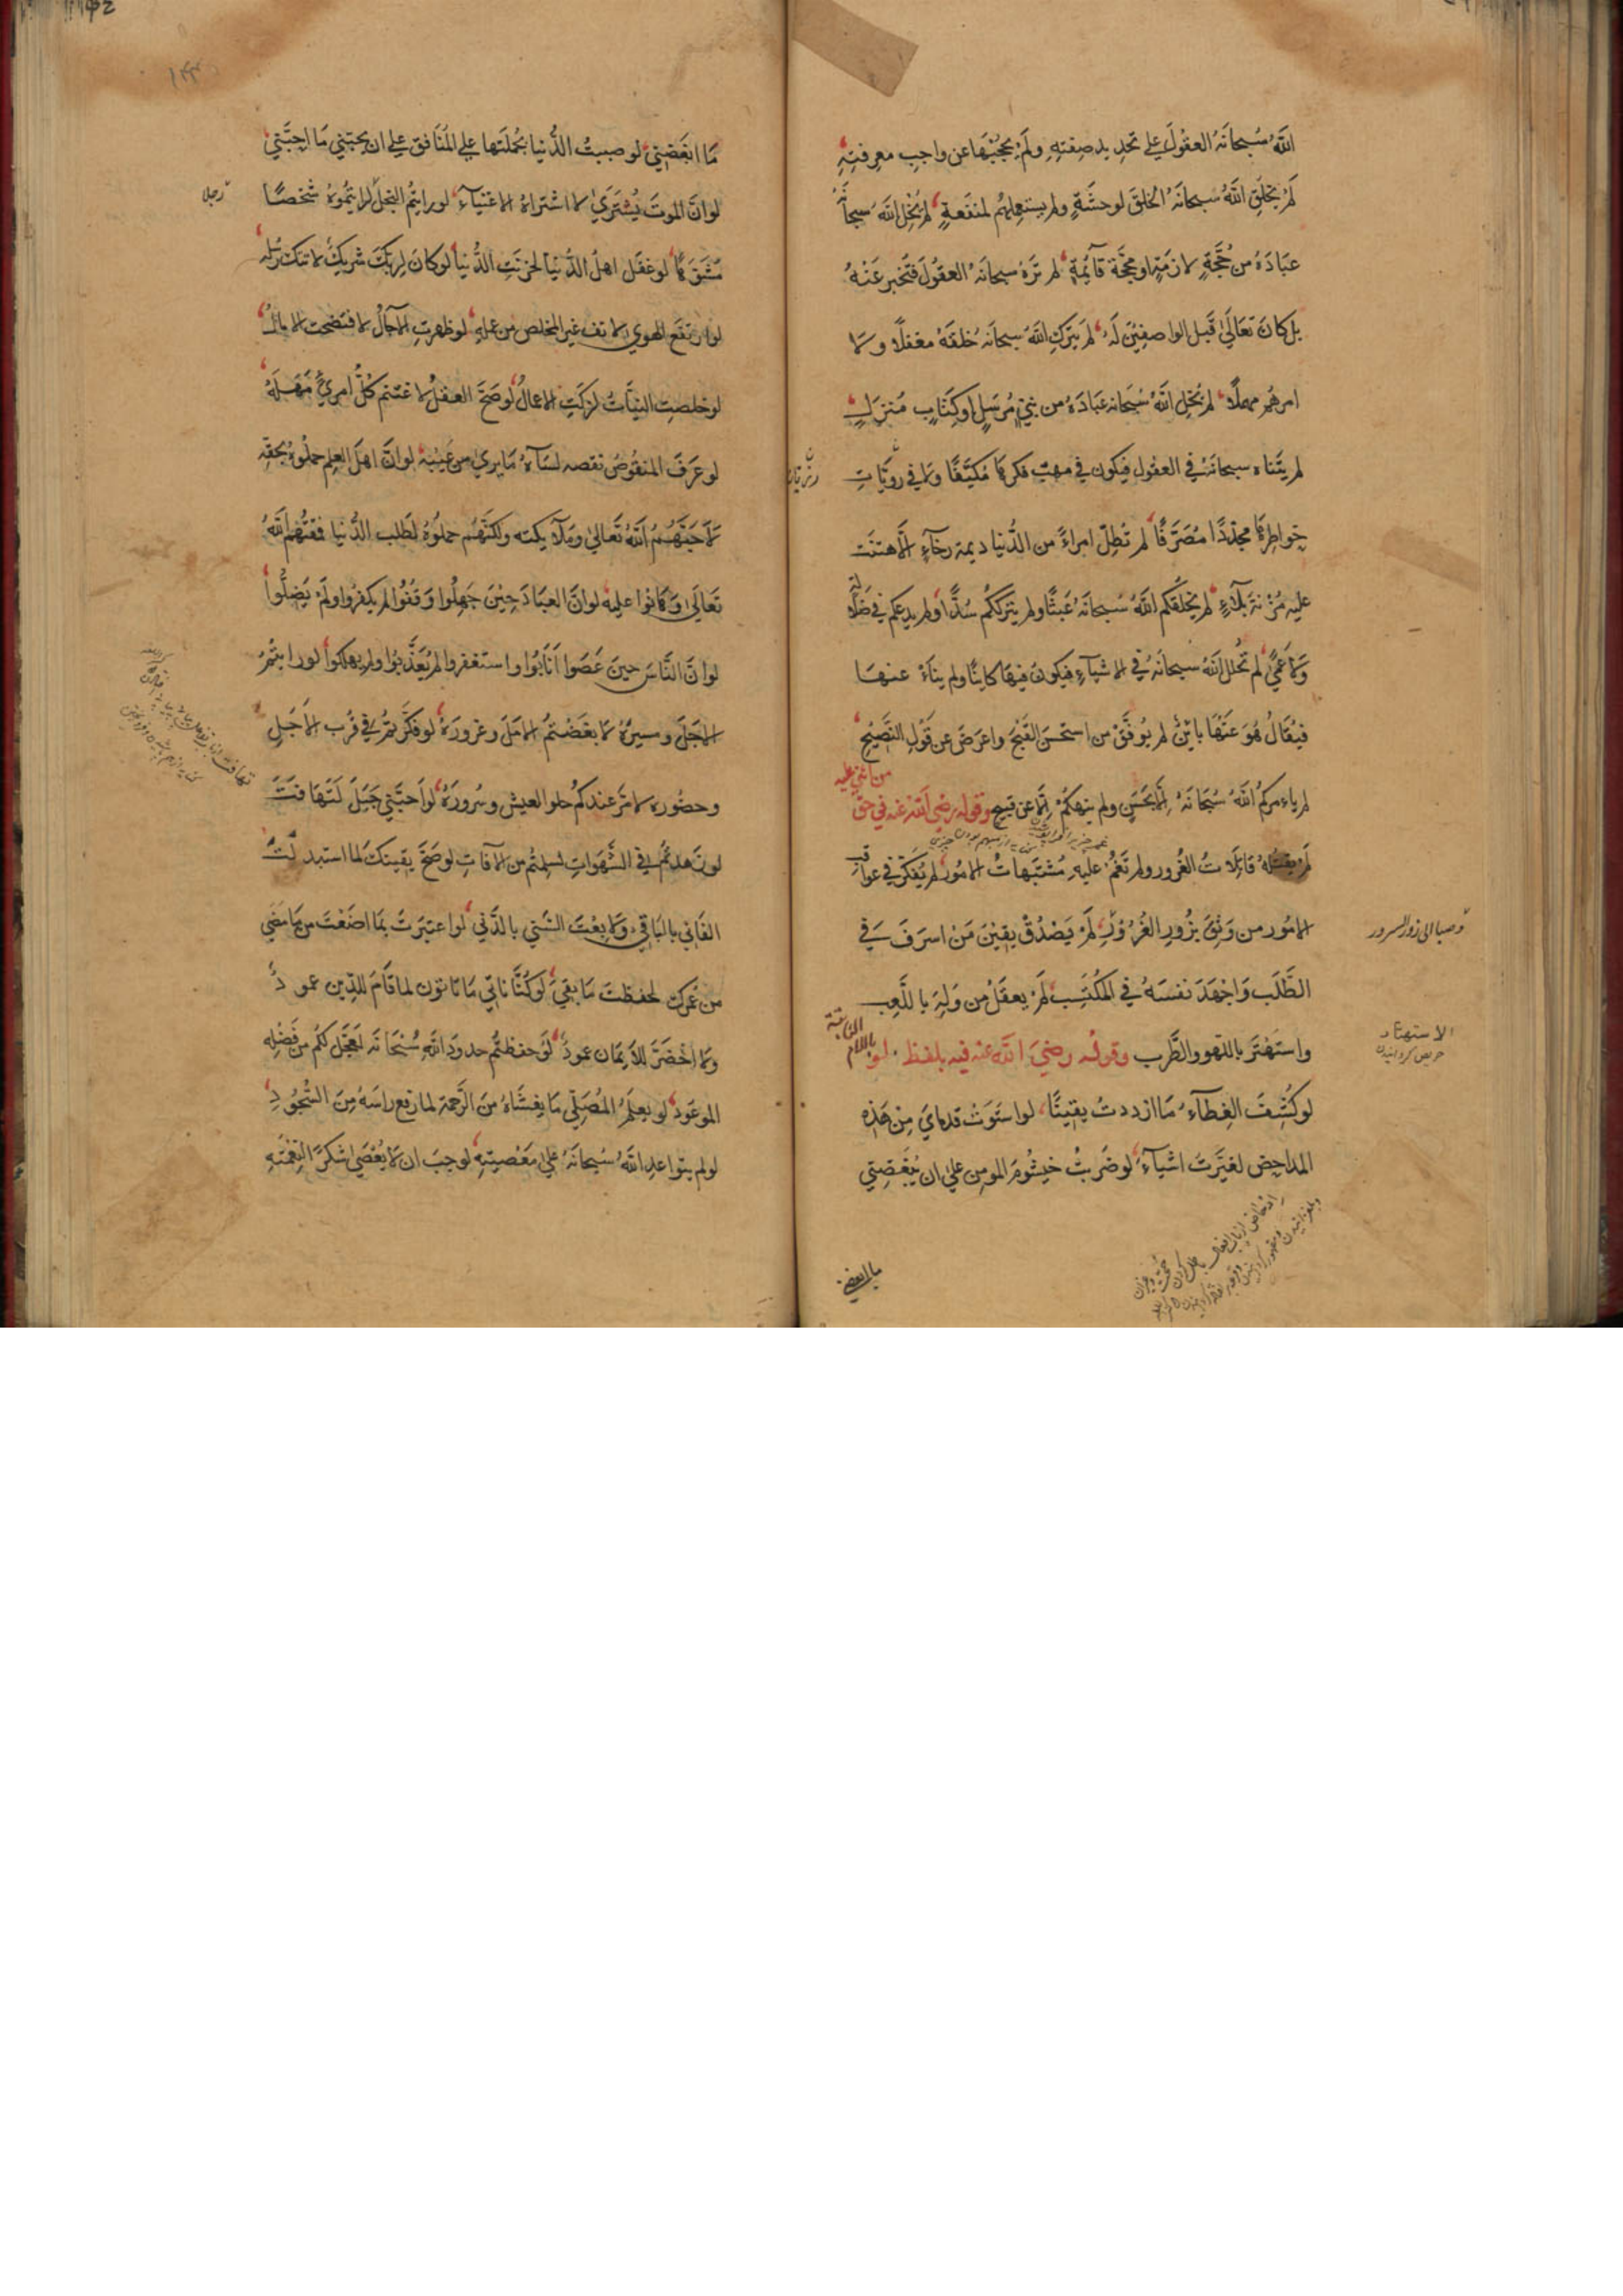 اللهُ سُبحانَهُ العقُولَ علي تحديد صفتهِ ولَم يحجُبْهَا عن واجبِ معرفتِهِ
لَم يخلقِ اللهُ سُبحانَهُ الخلقَ لوحشَةٍ ولم يستعملهُم لمنفعةٍ لم يُخلِ اللهُ سبحانَهُ
عبَادَهُ من حُجَّةٍ لازمَةٍ او محجَّة قآئمةٍ لم ترَهُ سبحانَهُ العقُولَ فتُخبرعَنْهُ
بل كانَ تعَالَيٰ قَبل الواصفِيْنَ لَهُ لم يَترُكِ اللهُ سبحانَه خلقَهُ مغفلًا ولا
امرهُم مهملًا لم يُخلِ اللهُ سُبحَانه عبَادَهُ من نبيٍّ مُرسَلٍ اوكتَابٍ مُنزَلٍ
لم يتَناه سبحانَهُ في العقُولِ فيكون في مهبّ فكرهَا مُكيَّفًا ولا في رويَّاتِ
خواطِرهَا محدَّدًا مُصَرَّفًا لم تُطِلّ امراءً من الدُّنيا ديمة رخآءٍ الَّا هتنَت
عليه مُزْنةَ بلآءٍ لم يخلقكُم اللهُ سُبحانَهُ عَبثًا ولم يترككُم سُدًا ولم يدعكم في ضَلَالَةٍ
ولا عَميً لم تُحلل اللهُ سبحانَهُ في الاشيآءِ فيكونَ فيهَا كاينًا ولم يناءَ عنهَا
فيُقالُ هُوَ عَنْهَا باينٌ لم يوفَّقْ من استحسَنَ القَبيحَ واعرضَ عن قَولِ النَّصِيحِ
لم ياءمركُم اللهُ سُبحَانَهُ اِلَّا بحَسَنٍ ولم ينهكُمْ اِلَّا عن قبيحٍ وقوله رضي الله عنه في حق
من اثني عليه
لَم يقتلهُ قاتلاتُ الغُرورِ ولم تَغمُ عليهِ مُشتبَهاتُ الامُورِ لم يُفكِّرْ في عواقبِ
الامُور من وَثِقَ بزُورِ الغُرُوْرِ لَم يَصْدُقْ يقيْنُ مَنْ اسرَفَ في
وصبا الي زور السرور
الطَّلَبِ وَاجْهَدَ نفسَهُ في المكْتَسِبِ لَم يعقلْ من وَلِهَ باللَّعِبِ
واستَهْتَرَ باللهو والطَّرب وقوله رضيَ الله عنه فيه بلفظ لو
باللام
الاستهتار
حريص كردانيدن
لوكُشِفَ الغِطَآءُ مَا ازددتُ يقينًا لواستَوَتْ قدمايَ مِنْ هَذِهِ
المداحِضِ لغيَّرتُ اشيآءَ لوضَربْتُ خيشُومَ المومن علي ان يُبْغضِني
ما ابغضني
مَا ابغَضَنِي لوصببتُ الدُّنيا بجُملتَها علي المُنَافق علي ان يحبّني مَا احبَّنِي
لوانَّ الموتَ يُشتَرَيٰ لاشتراهُ الاغنيآءُ لورايتُمُ البُخلَ لرايتمُوهُ شخصًا
رجلا
مُشَوَّهًا لوعَقل اهلُ الدُّنيا لخربَتِ الدُّنيا لوكانَ لِربكَ شريكٌ لاتتكَ رُسُله
لوارتفعَ الهوي لانف غير المخلص من عملهِ لوظهرتِ الآجالُ لافتضحت الامالُ
لوخلصتِ النيَّاتُ لزكَتِ الاعمالُ لوصَحَّ العقلُ لاغتنم كُلُّ امريً مَهَلَهُ
لوعَرفَ المنقُوصُ نقصه لسَآءهُ مَايريٰ من عَيْبهِ لوانَّ اهلَ العِلم حملُوهُ بحقّهِ
لَاحبَّهُمُ اللهُ تَعالي ومَلآيكته ولكنَّهُم حملُوهُ لطَلبِ الدُّنيا فمقتَهُم اللهُ
تعَالَي وَهَانُوا عليه لوانَّ العِبَادَ حِيْنَ جَهِلُوا وَقفُوا لم يكفُروا ولَمْ يَضِلُّوا
لوانَّ النَّاسَ حينَ عَصَوا اَنَابُوا واستغفروا لم يُعَذَّبُوا ولم يهلكُوا لورايتُمُ
الاجَلَ ومسيرَهُ لابغَضْتُمُ الامَلَ وغرورَهُ لوفكَّرتمُ في قُرب الاَجَلِ
وحضُوره لامَرَّ عندكُم حلوالعيش وسُرورَهُ لواَحبَّنِي جَبَلٌ لَتَهَافَتَ
لوزَهدتُم في الشَّهَواتِ لسلمتُم من الآفاتِ لوصَحَّ يقينكَ لما استبدلتَ
الفَانِي بالبَاقِي ولا بِعْتَ السَّني بالدَّني لواعتبَرتَ بمَا اضَعْتَ من مَامَضي
من عُمركَ لحفظتَ مَابقيَ لوكُنَّا ناتِي مَاتاتون لما قَامَ للدّين عمودٌ
ولا اخْضَرَّ للاِيمَان عودٌ لوحفظتُم حدودَ اللهِ سُبْحَانَه لعجَّل لكُم من فَضْلِهِ
الموعُودَ لويعلمُ المُصَلِّي مَايغشَاهُ منَ الرَّحمة لمارفع راسَهُ مِنَ السُّجُودِ
لولم يتواعدِ اللهُ سُبحانَهُ عَليٰ مَعْصيتهِ لوجبَ ان لا يُعْصَي شكرًا لنِعْمَتهِ